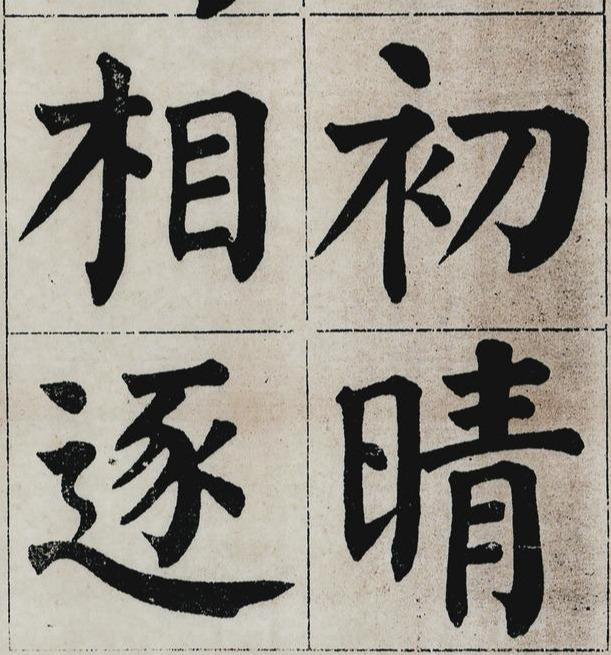 初晴
相逐